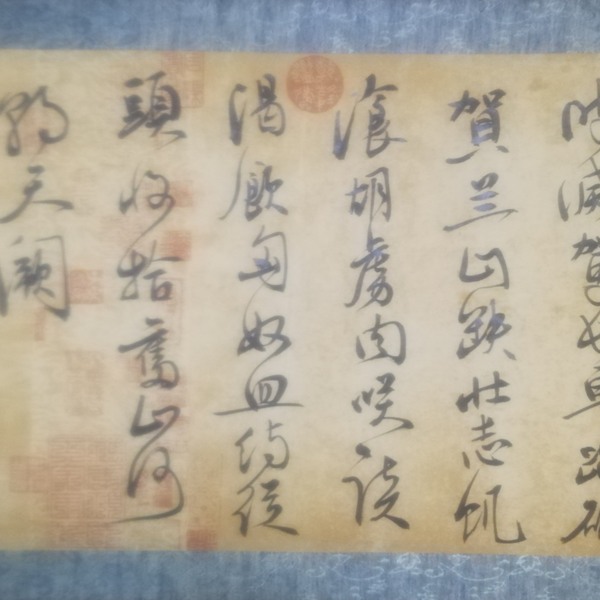 時滅駕長車踏破
賀兰山缺壯志飢
湌胡虜肉咲談
渴飲匈奴血待從
頭收拾舊山河
朝天闕